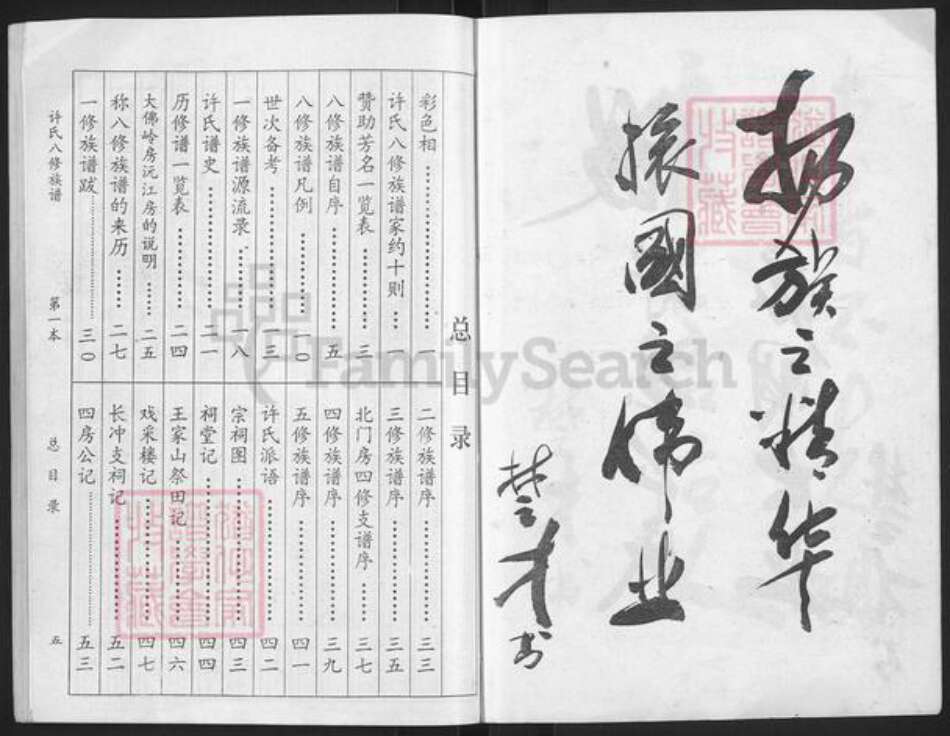 扬族之精华
振國之伟业
楚才书
总目录
彩色相……一
许氏八修族谱家约十则…一
赞助芳名一览表……三
八修族谱自序……五
八修族谱凡例……一〇
世次备考……一三
一修族谱源流录……一八
许氏谱史……二一
历修谱一览表……二四
大佛岭房沅江房的说明……二五
称八修族谱的来历……二七
一修族谱跋……三〇
二修族谱序……三三
三修族谱序……三五
北门房四修支谱序……三七
四修族谱序……三九
五修族谱序……四一
许氏派语……四二
宗祠图……四三
祠堂记……四四
王家山祭田记……四六
戏采楼记……四七
长冲支祠记……五二
四房公记……五三
许氏八修族谱
第一本
总目录
五
FamilySearch